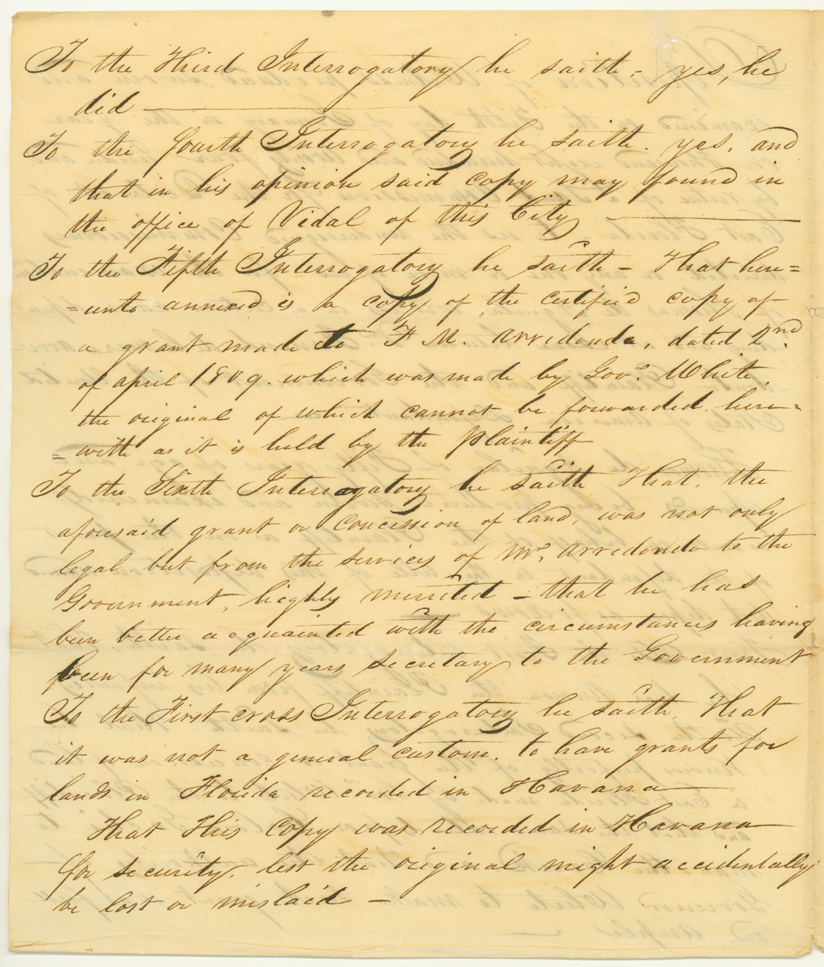 To the Third Interrogatory he saith - yes, he
did
To the fourth Interrogatory he saith. yes, and
that in his opinion said copy may found in
the office of Vidal of this City
To the Fifth Interrogatory he saith - That here=
=unto annexed is a copy of the certified copy of
a grant made to F. M. Arredondo, dated 2nd.
of april 1809. which was made by Govr. White,
the original of which cannot be forwarded here=
=with as it is held by the plaintiff
To the Sixth Interrogatory he saith That, the
aforesaid grant or concession of land, was not only
legal. but from the services of Mr. Arredondo to the
Government, highly merrited - that he has
been better acquainted with the circumstances having
been for many years secretary to the Government
To the First cross Interrogatory he saith, That
it was not a general custom. to have grants for
lands in Florida recorded in Havana
That This copy was recorded in Havana
for security. lest the original might accidentally
be lost or mislaid -